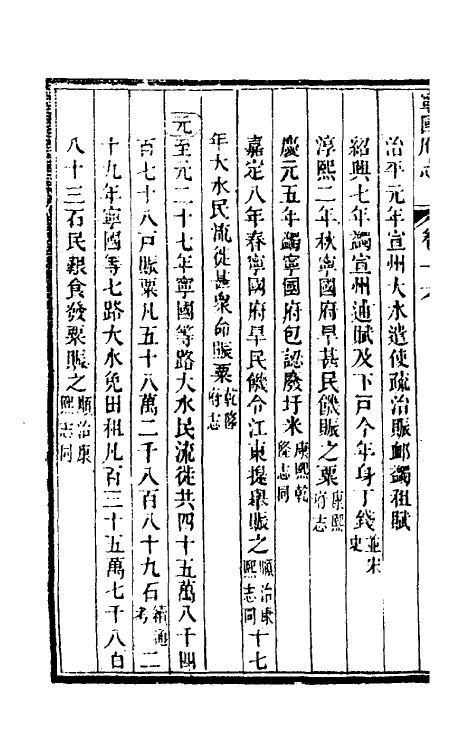 寧國府志　卷十六
治平元年宣州大水遣使疏治賑卹蠲租賦
紹興七年蠲宣州逋賦及下戸今年身丁錢並宋史
淳熙二年秋寧國府旱甚民饑賑之粟康熙府志
慶元五年蠲寧國府包認廢圩米康熙乾隆志同
嘉定八年春寧國府旱民饑令江東提舉賑之順治康熙志同十七
年大水民流徙甚衆命賑粟乾隆府志
元至元二十七年寧國等路大水民流徙共四十五萬八千四
百七十八戸賑粟凡五十八萬二千八百八十九石續通考二
十九年寧國等七路大水免田租凡百三十五萬七千八百
八十三石民艱食發粟賑之順治康熙志同